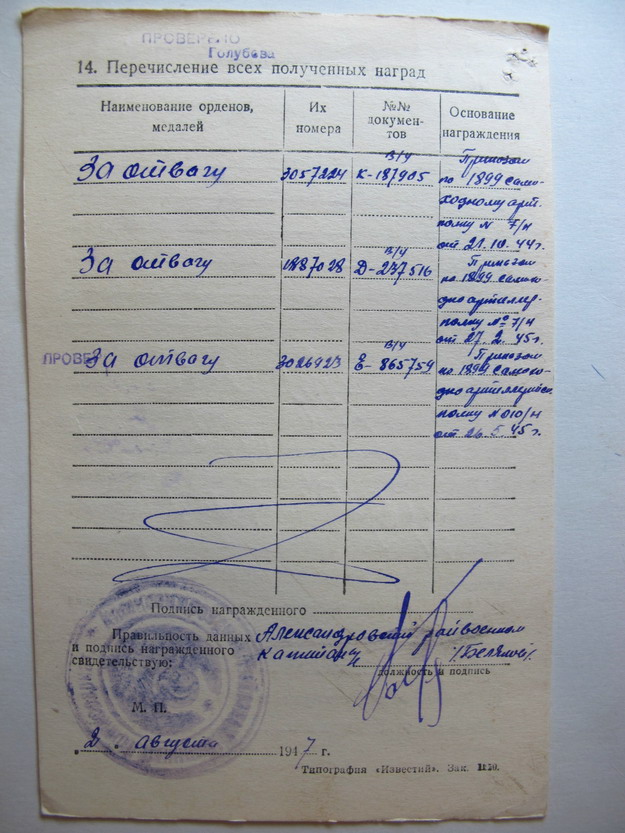 ПРОВЕРЕНО
Голубева
14. Перечисление всех полученных наград
Наименование орденов, медалей
Их номера
№№ документов
Основание награждения
За отвагу 3057224 в/у К-187905 Приказом
по 1899 само-
ходному арт.
полку N 7/н
от 21.10.44г.
За отвагу 1287028 в/у Д-237516 Приказом
по 1899 самохо-
дно артиллер-
полку № 7/н
от 27.2.45г.
ПРОВЕ
За отвагу 3026923 в/у Е-865759 Приказом
по 1899 самохо-
дно
полку N 010/н
от 26.5.45г.
Подпись награжденного
Правильность данных Александровский райвоенком
и подпись награжденного капитан
свидетельствую:
должность и подпись
М. П.
„2" августа 1947 г.
Типография «Известий». Зак.